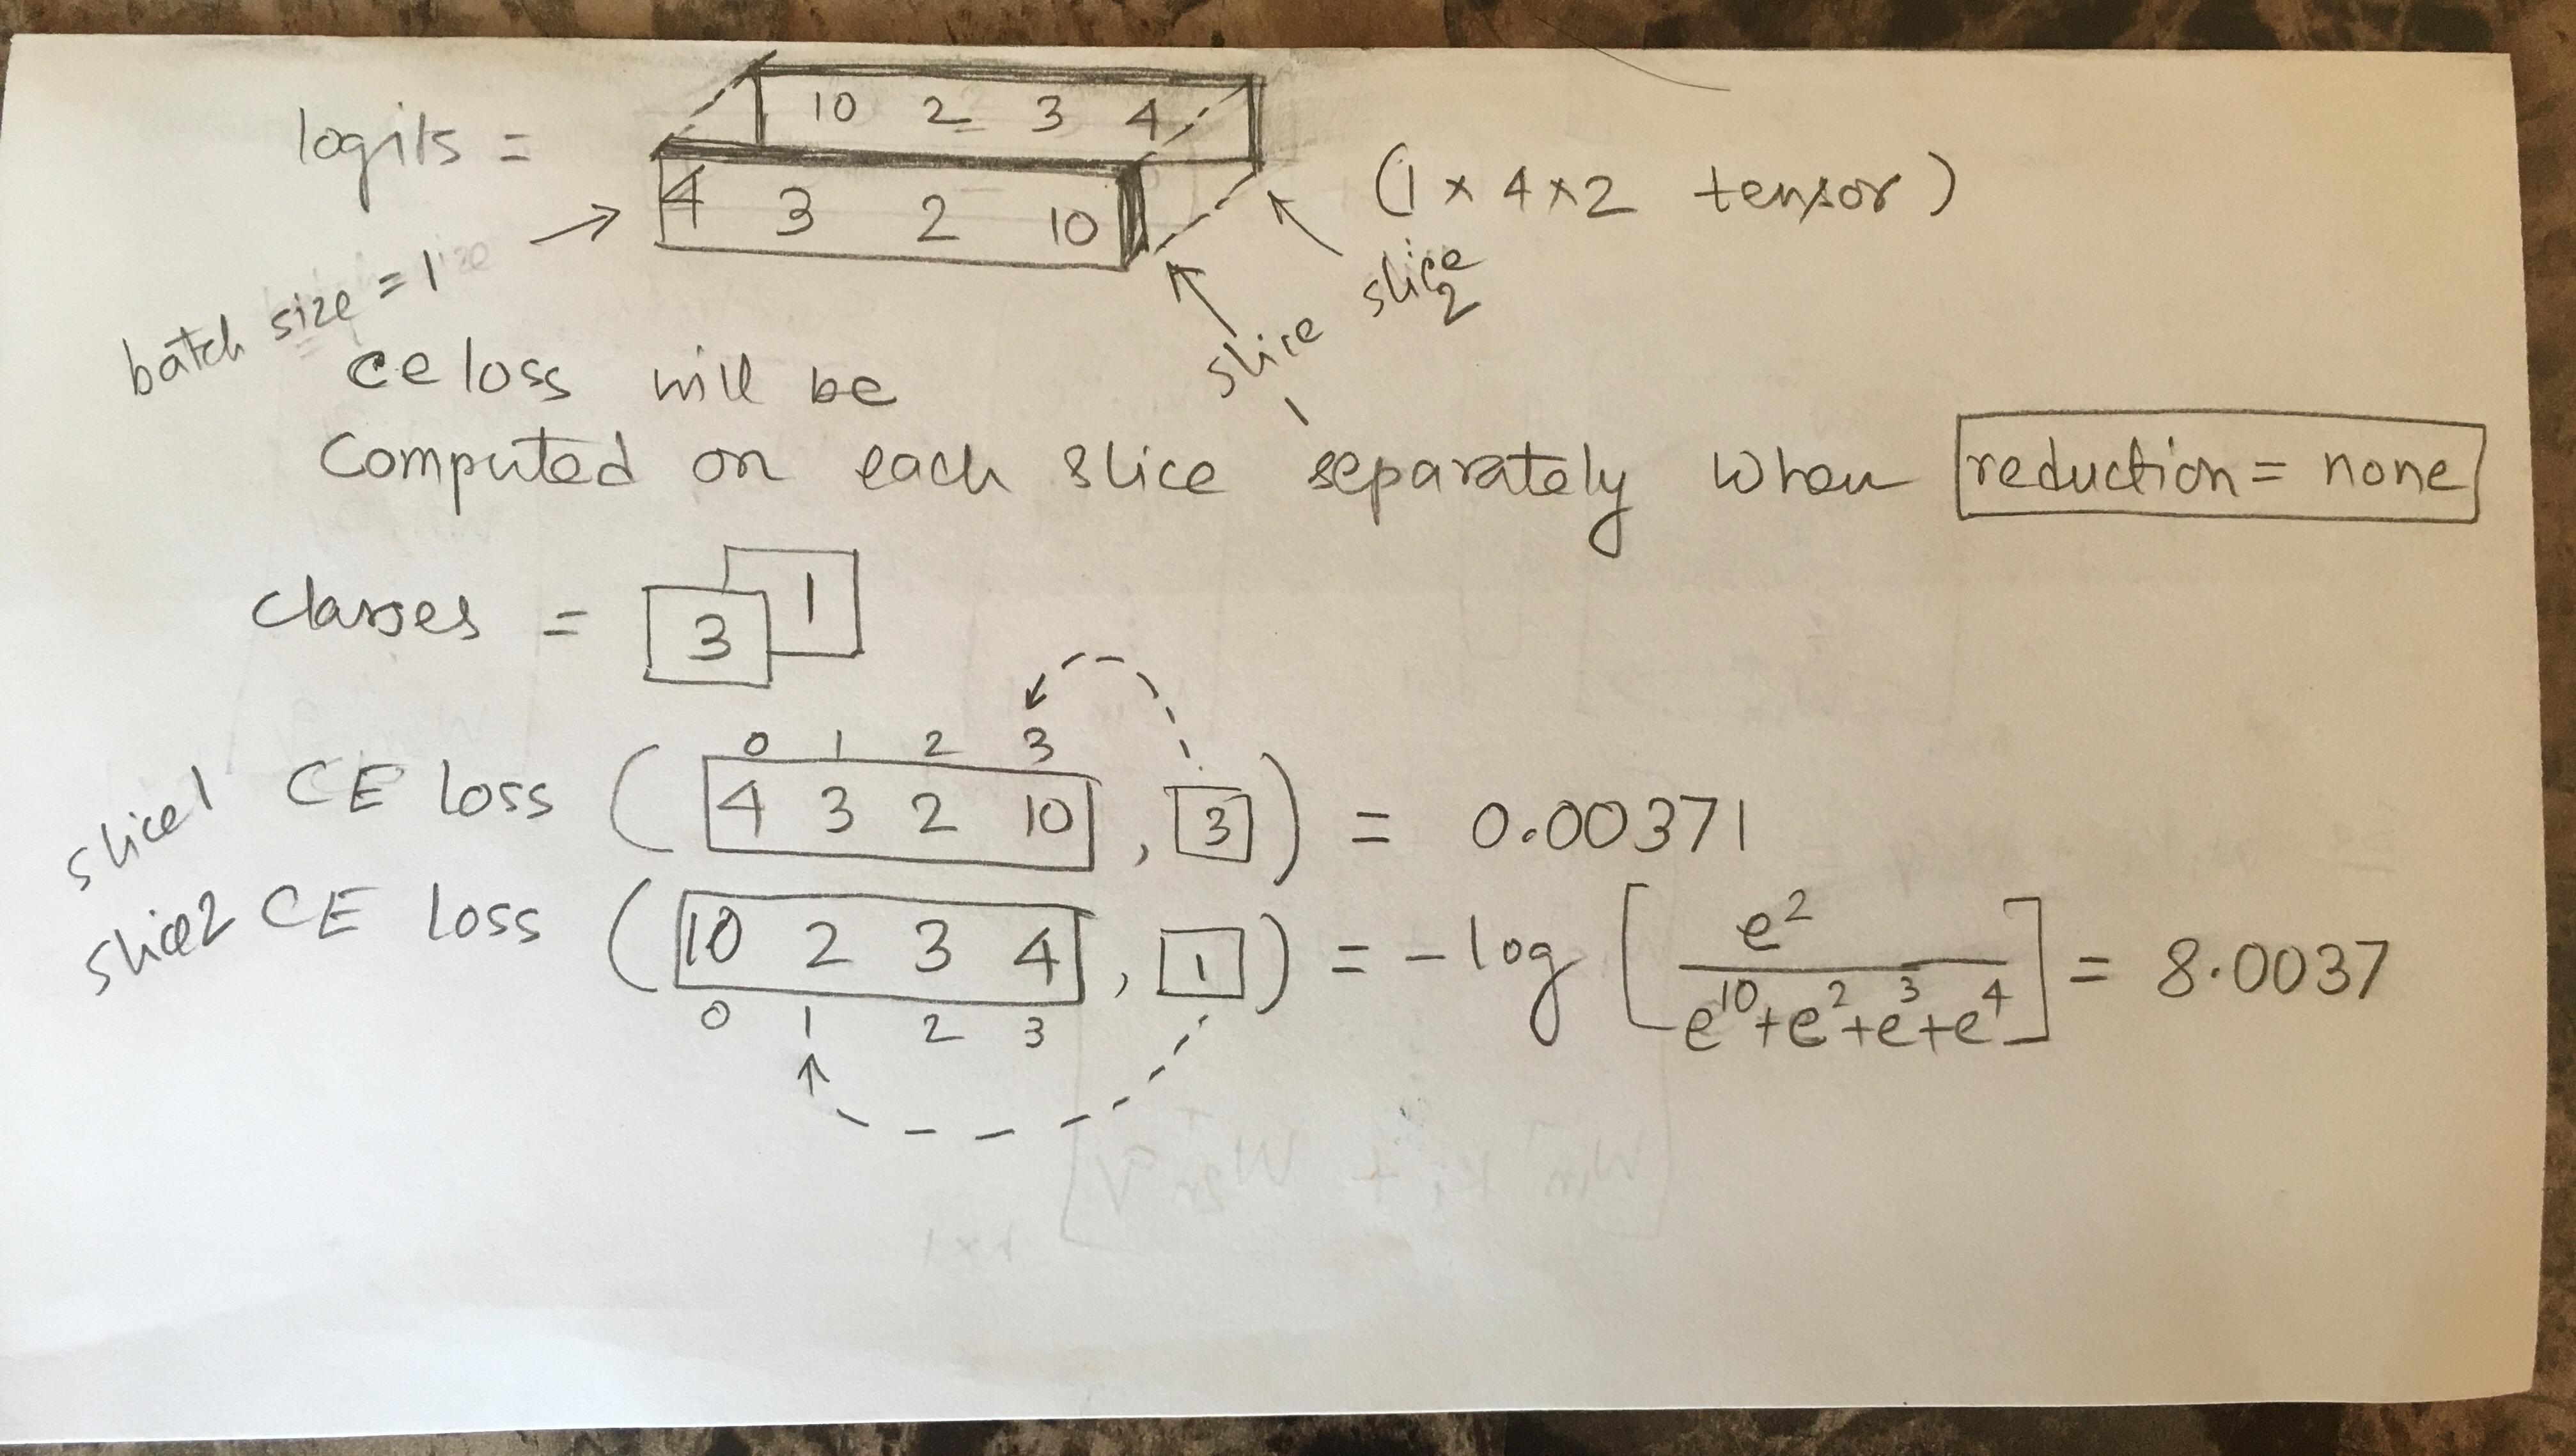 logits =
10 2 3 4
4 3 2 10
(1 x 4 x 2 tensor)
batch size = 1
slice 1
slice 2
CE loss will be
Computed on each slice separately when reduction = none
classes = 3 1
0 1 2 3
slice1 CE loss ( 4 3 2 10 , 3 ) = 0.00371
slice2 CE loss ( 10 2 3 4 , 1 ) = -log [ e^2 / e^10 + e^2 + e^3 + e^4 ] = 8.0037
0 1 2 3